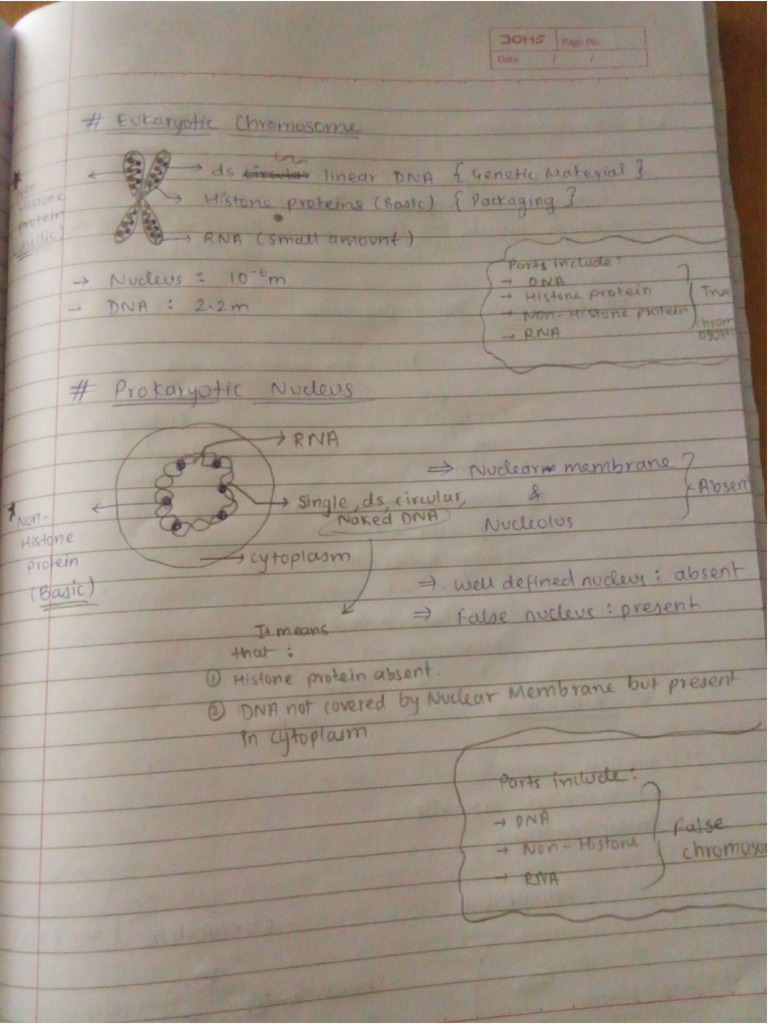 JOMS Page No.
Date / /
# Eukaryotic Chromasome
→ ds circular linear DNA { Genetic Material }
* Non
Histone
Protein
→ Histone proteins (Basic) { Packaging }
→ RNA (small amount)
→ Nucleus : 10⁻⁶m
→ DNA : 2.2m
Parts include:
→ DNA
→ Histone protein
→ Non-Histone protein
→ RNA
True
# Prokaryotic Nucleus
→ RNA
→ Single, ds, circular,
Naked DNA
→ cytoplasm
* Non-
Histone
protein
(Basic)
⇒ Nuclear membrane
&
Nucleolus
Absent
⇒ well defined nucleus : absent
⇒ False nucleus : present
It means
that :
① Histone protein absent.
② DNA not covered by Nuclear Membrane but present
in cytoplasm.
Parts include:
→ DNA
→ Non-Histone
→ RNA
False
chromoso